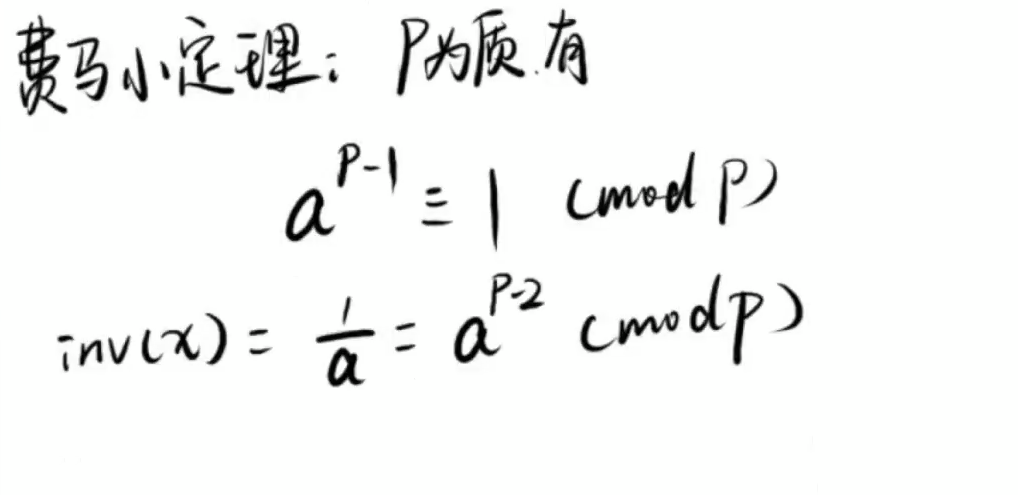 费马小定理：P为质.有
a^{P-1} ≡ 1 (mod P)
inv(x) = \frac{1}{a} = a^{P-2} (mod p)